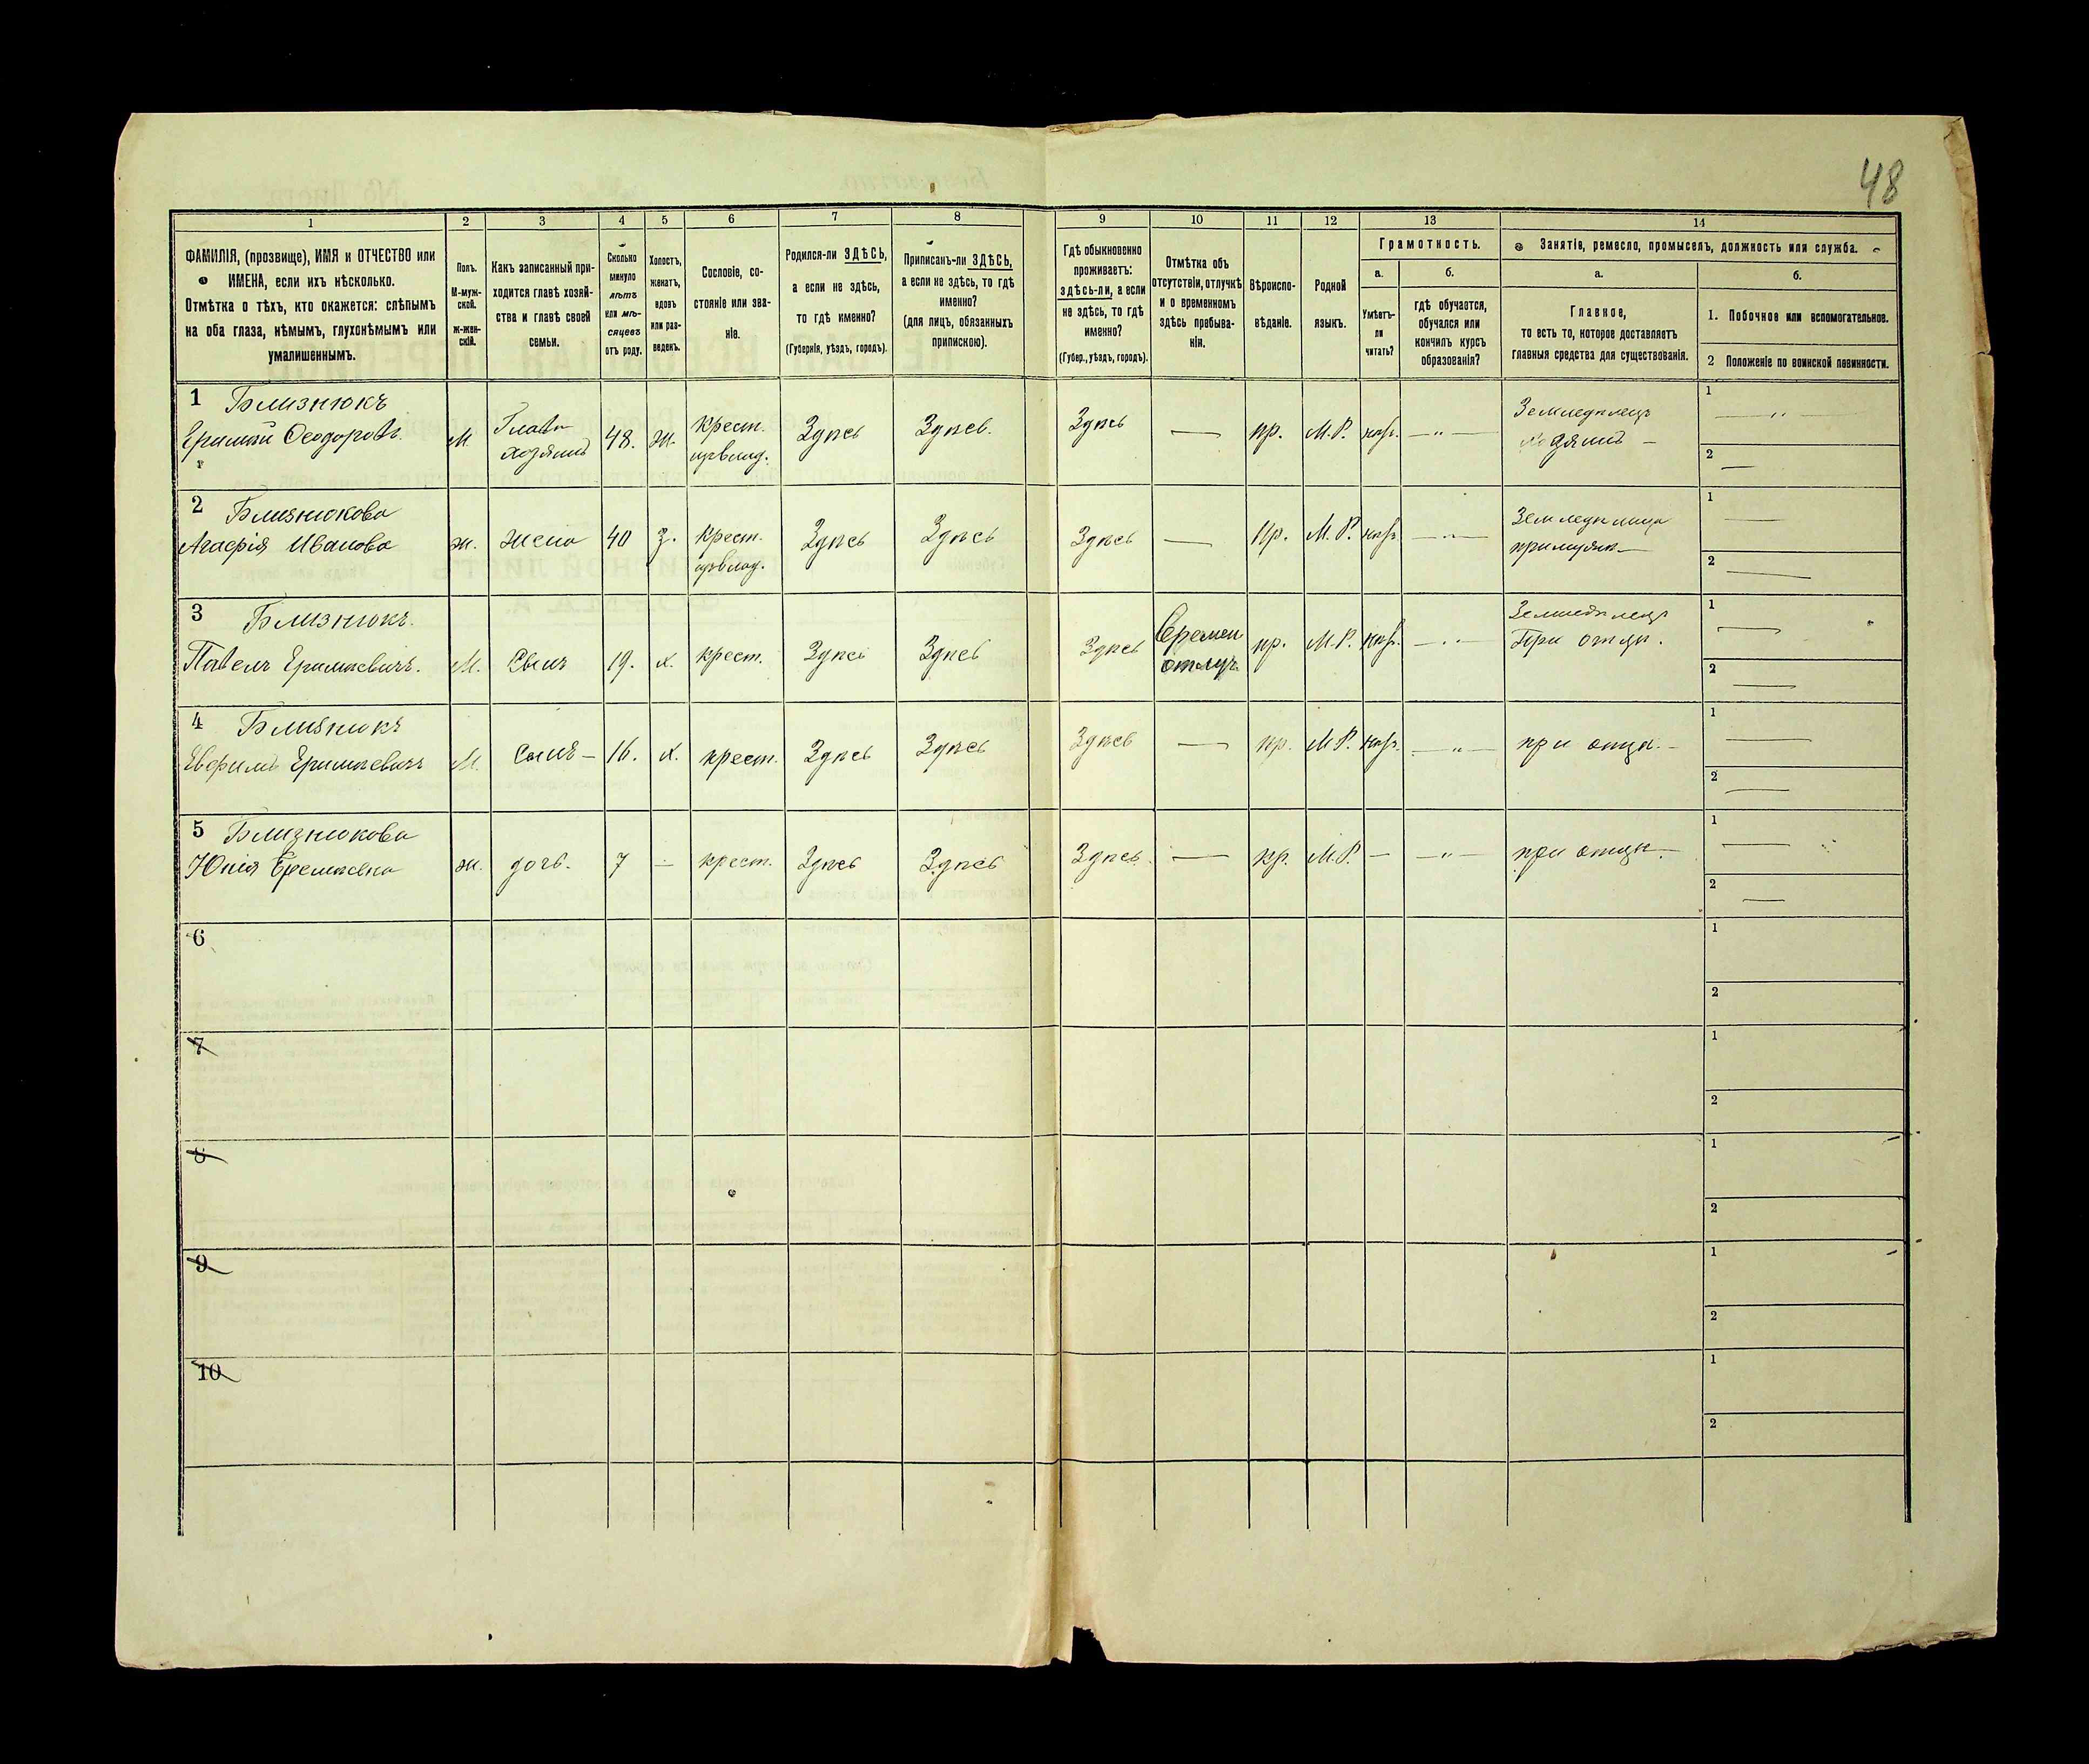 48
1 2 3 4 5 6 7 8 9 10 11 12 13 14
ФАМИЛІЯ, (прозвище), ИМЯ и ОТЧЕСТВО или
ИМЕНА, если ихъ нѣсколько.
Отмѣтка о тѣхъ, кто окажется: слѣпымъ
на оба глаза, нѣмымъ, глухонѣмымъ или
умалишеннымъ.
Полъ.
М-муж-
ской.
ж-жен-
скій.
Какъ записанный при-
ходится главѣ хозяй-
ства и главѣ своей
семьи.
Сколько
минуло
лѣтъ
или мѣ-
сяцевъ
отъ роду.
Холостъ,
женатъ,
вдовъ
или раз-
веденъ.
Сословіе, со-
стояніе или зва-
ніе.
Родился-ли ЗДѢСЬ,
а если не здѣсь,
то гдѣ именно?
(Губернія, уѣздъ, городъ).
Приписанъ-ли ЗДѢСЬ,
а если не здѣсь, то гдѣ
именно?
(для лицъ, обязанныхъ
припискою).
Гдѣ обыкновенно
проживаетъ:
здѣсь-ли, а если
не здѣсь, то гдѣ
именно?
(Губер., уѣздъ, городъ).
Отмѣтка объ
отсутствіи, отлучкѣ
и о временномъ
здѣсь пребыва-
ніи.
Вѣроиспо-
вѣданіе.
Родной
языкъ.
Грамотность.
а.
Умѣетъ-
ли
читать?
б.
гдѣ обучается,
обучался или
кончилъ курсъ
образованія?
Занятіе, ремесло, промыселъ, должность или служба.
а.
Главное,
то есть то, которое доставляетъ
главныя средства для существованія.
б.
1. Побочное или вспомогательное.
2 Положеніе по воинской повинности.
1 Близнюкъ
Ѳеодоровъ.
М. Глава хозяинъ 48. ж. крест. Здѣсь Здѣсь. Здѣсь — пр. М.Р. — „ — Земледѣлецъ хозяинъ —
1 — „ —
2 —
2 Близнюкова
Агафія Иванова
ж. жена 40 з. крест. Здѣсь Здѣсь Здѣсь — пр. М.Р. — „ — при мужѣ —
1 —
2 —
3 Близнюкъ.
Павелъ
М. Сынъ 19. х. крест. Здѣсь Здѣсь Здѣсь Времен отлуч. пр. М.Р. — „ — Земледѣлецъ При отцѣ.
1 —
2 —
4 Близнюкъ
М. Сынъ — 16. х. крест. Здѣсь Здѣсь Здѣсь — пр. М.Р. — „ — при отцѣ. —
1 —
2 —
5 Близнюкова
ж. дочь. 7 — крест. Здѣсь Здѣсь Здѣсь. — пр. М.Р. — — „ — при отцѣ. —
1 —
2 —
6
1
2
7
1
2
8
1
2
9
1
2
10
1
2